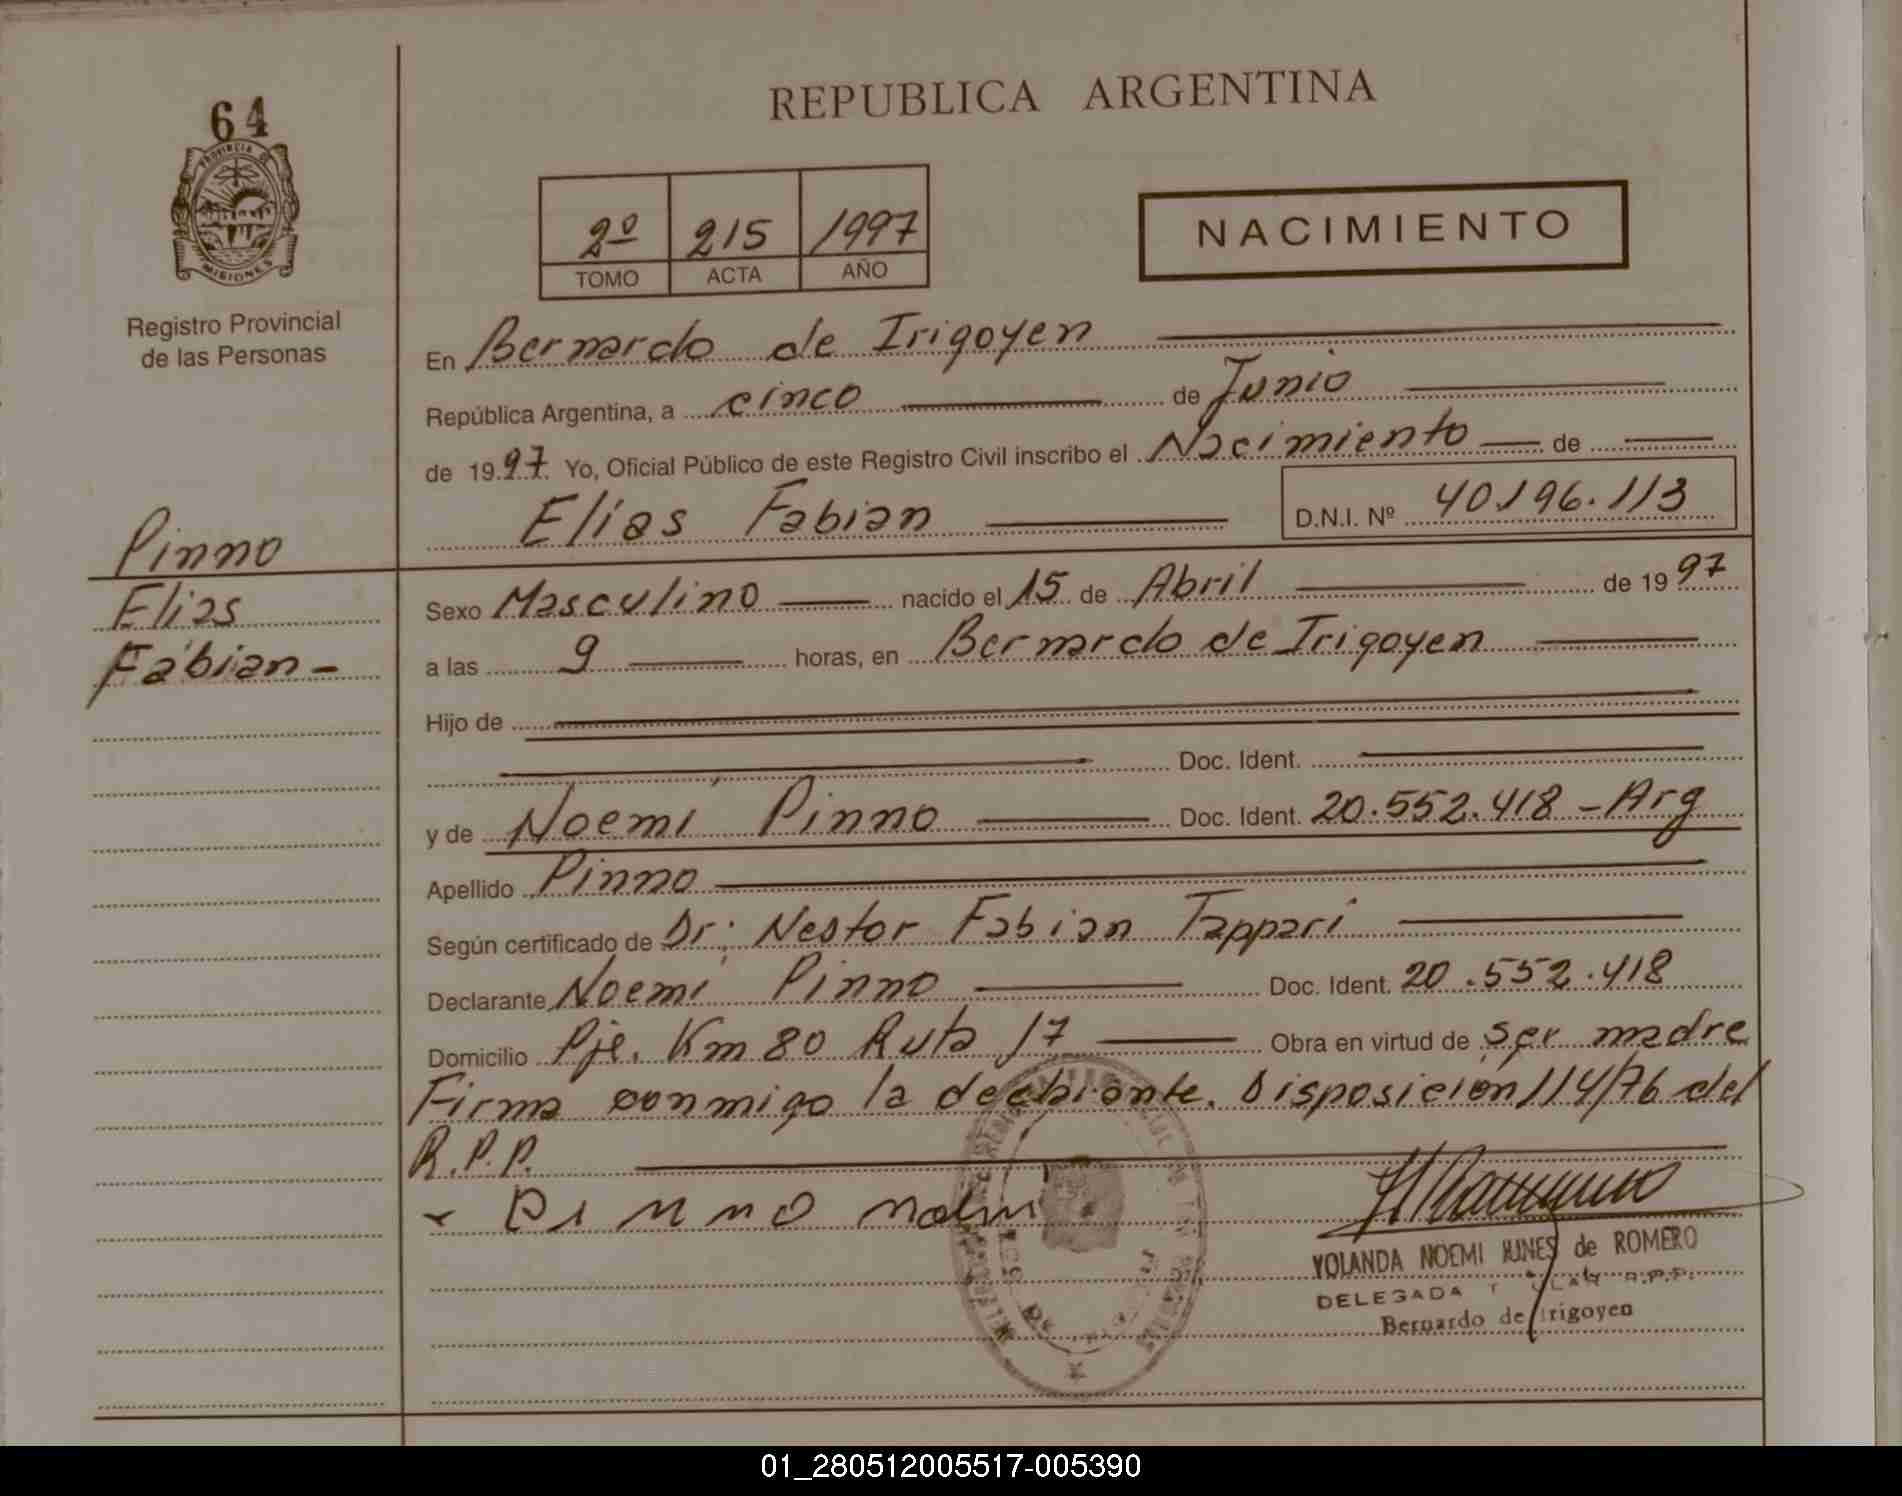 64
PROVINCIA DE
MISIONES
Registro Provincial
de las Personas
REPUBLICA ARGENTINA
2º 215 1997
TOMO ACTA AÑO
NACIMIENTO
En Bernardo de Irigoyen
República Argentina, a cinco de Junio
de 1997. Yo, Oficial Público de este Registro Civil inscribo el Nacimiento de
Elias Fabian D.N.I. Nº 40.196.113
Pinno
Elias
Fabian -
Sexo Masculino nacido el 15 de Abril de 1997
a las 9 horas, en Bernardo de Irigoyen
Hijo de
Doc. Ident.
y de Noemí Pinno Doc. Ident. 20.552.418 - Arg
Apellido Pinno
Según certificado de Dr: Nestor Fabian Tappari
Declarante Noemí Pinno Doc. Ident. 20.552.418
Domicilio Pje. Km 80 Ruta 17 Obra en virtud de ser madre
Firma conmigo la declarante. Disposición 114/76 del
R.P.P.
Pinno
YOLANDA NOEMI de ROMERO
DELEGADA R.P.P.
Bernardo de Irigoyen
01_280512005517-005390